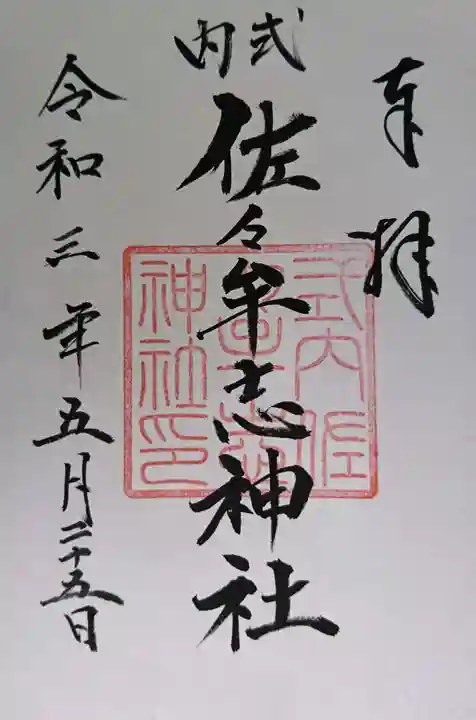 奉拝
式内
佐々牟志神社
令和三年五月二十五日
式内佐
神社印